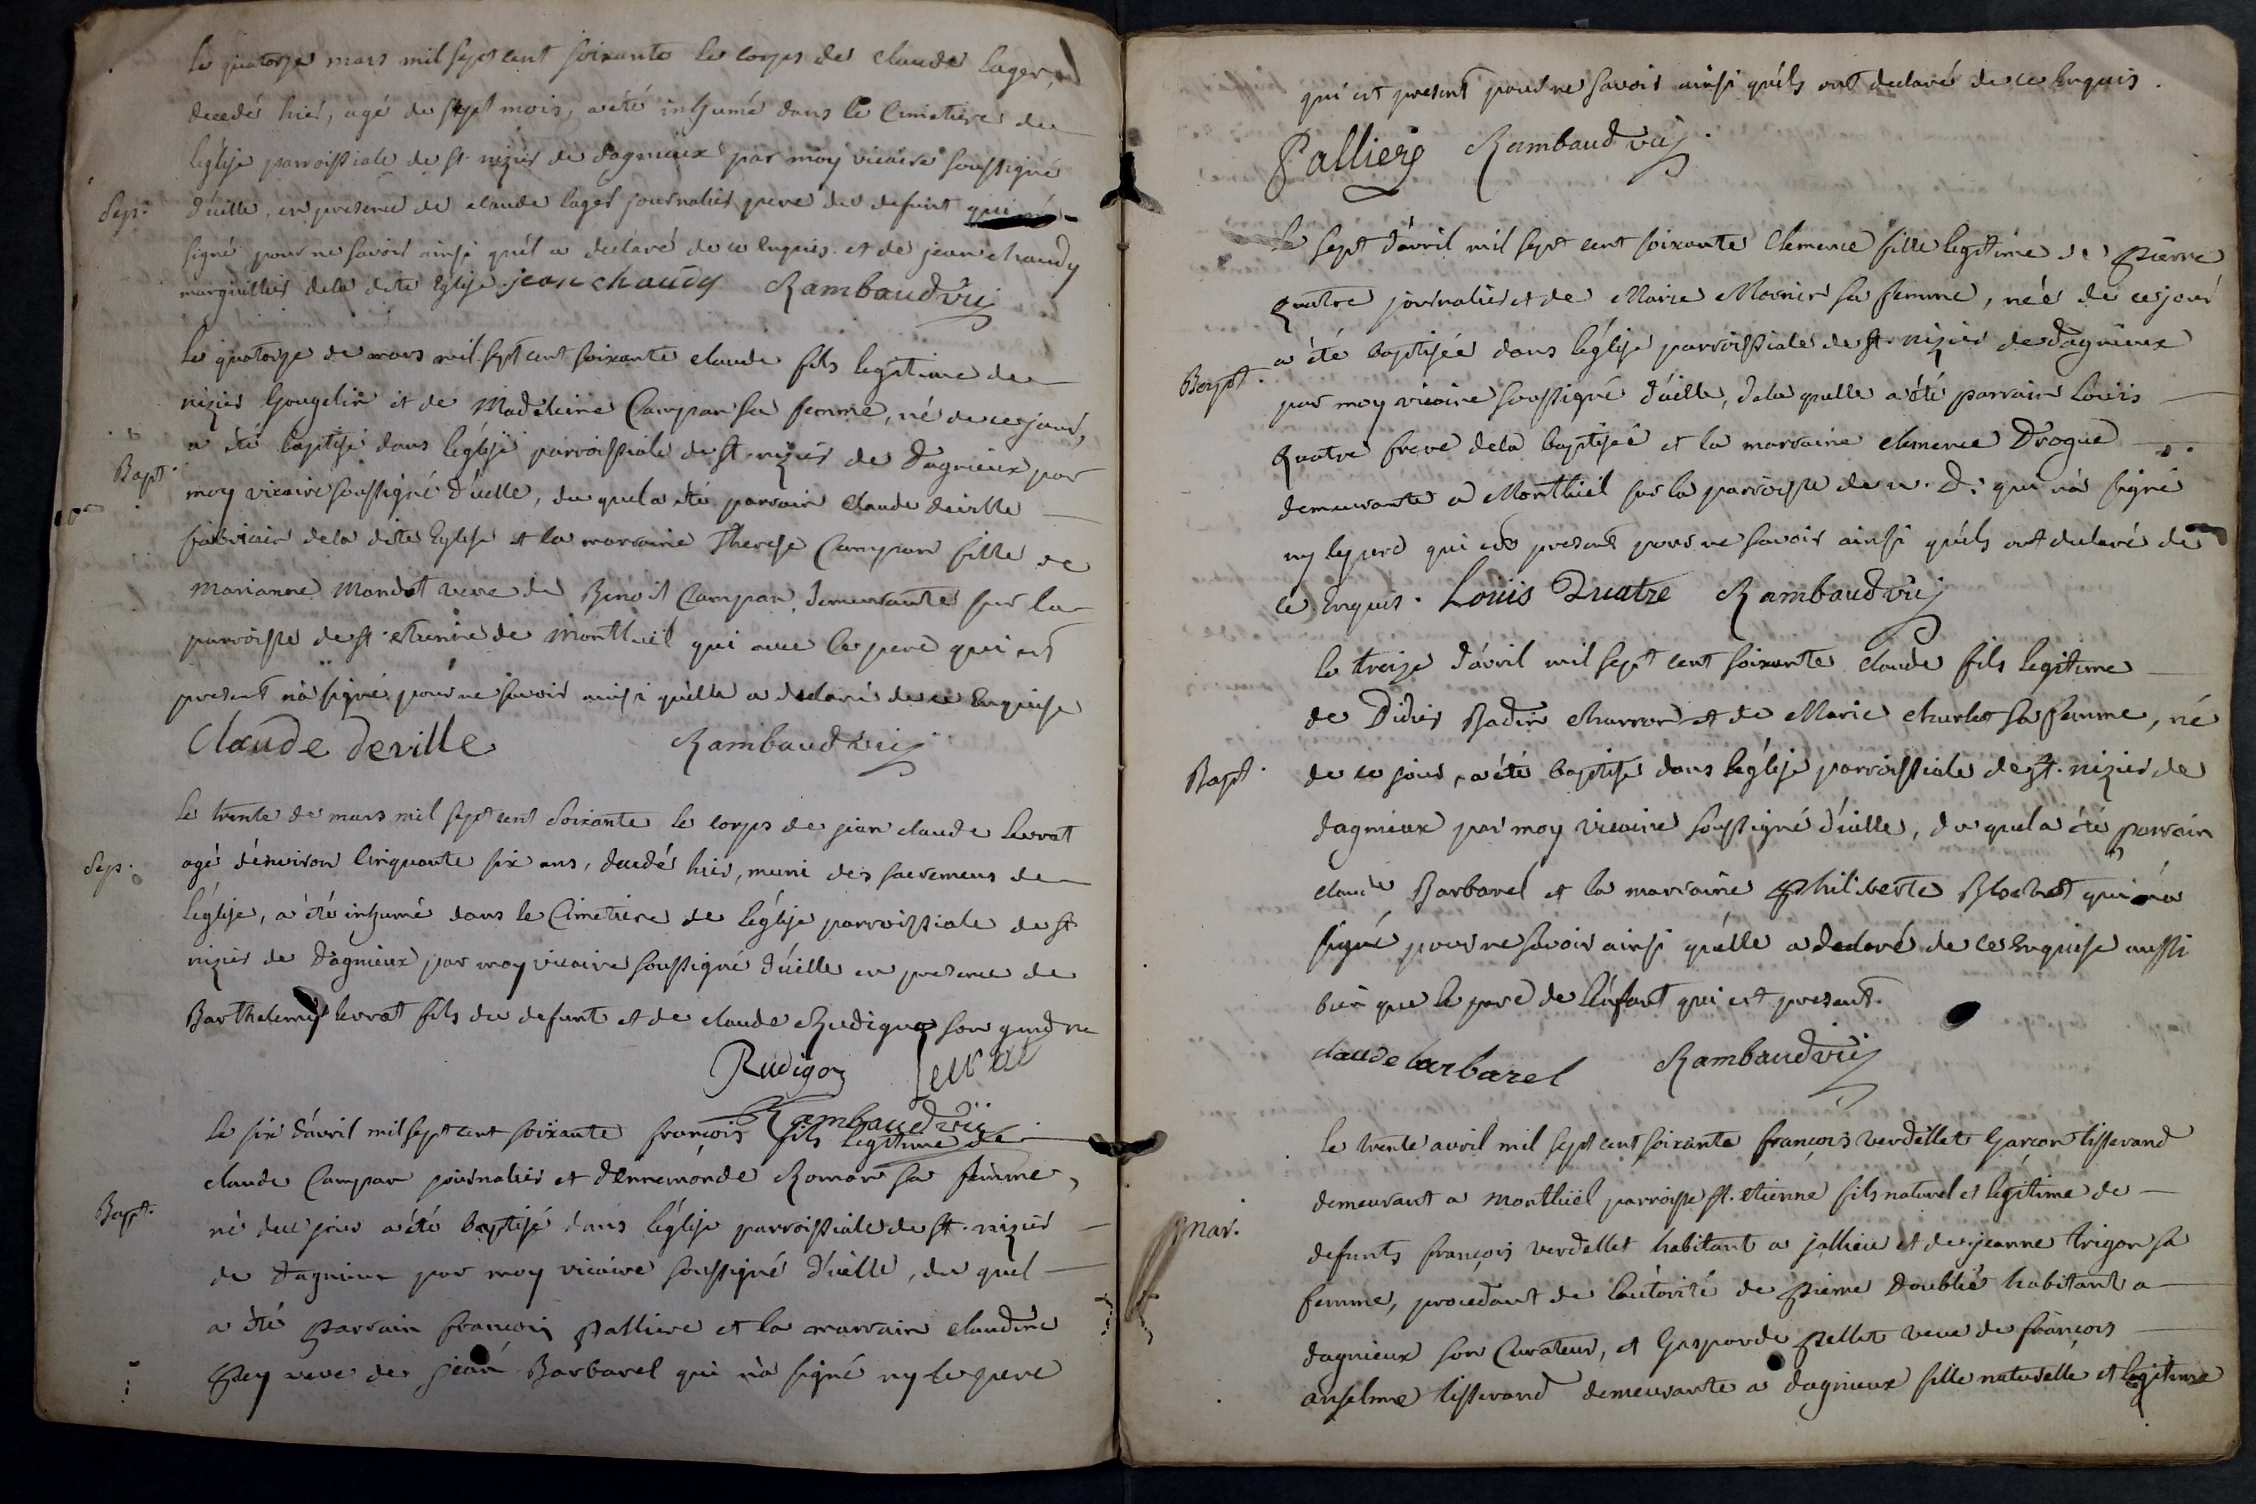 le quatorze mars mil sept cent soixante le corps de claude lager,
decedé hier, agé de sept mois, a été inhumé dans le Cimetiere de
l'eglise parroissiale de st nizier de dagnieux par moy vicaire soussigné
Sep.
d'icelle, en presence de claude lager journalier pere du defunt qui n'a
signé pour ne savoir ainsi qu'il a declaré de ce enquis. et de jean chaudy
marguillier de la dite Eglise. jean chaudy Rambaud vic
le quatorze de mars mil sept cent soixante claude fils legitime de
nizier Gougelin et de Madeleine Campan sa femme, né de ce jour,
a été baptisé dans l'église parroissiale de st. nizier de Dagnieux par
Bapt.
moy vicaire soussigné d'icelle, du quel a été parrain claude deville
fabricien de la dite Eglise et la marraine Therese Campan fille de
Marianne Mandot veve de Benoit Campan, demeurante sur la
parroisse de st. etienne de Montluel qui avec le pere qui est
present n'a signé pour ne savoir ainsi qu'elle a declaré de ce Enquise
Claude deville Rambaud vic
le trente de mars mil sept cent soixante le corps de jean claude levrat
Sep.
agé d'environ Cinquante six ans, decedé hier, muni des sacremens de
l'église, a été inhumé dans le Cimetiere de l'église parroissiale de st
nizier de Dagnieux par moy vicaire soussigné d'icelle en presence de
Barthelemy levrat fils du defunt et de claude Rudigoz son gendre
Rudigoz Levrat
Rambaud vic
le six d'avril mil sept cent soixante françois fils legitime de
claude Campan journalier et d'ennemonde Roman sa femme,
Bapt.
né de ce jour a été baptisé dans l'église parroissiale de st. nizier
de dagnieux par moy vicaire soussigné d'icelle, du quel
a été parrain françois palliere et la marraine claudine
pey veve de jean Barbarel qui n'a signé ny le pere
qui est present pour ne savoir ainsi qu'ils ont declaré de ce Enquis.
Palliere Rambaud vic.
le sept d'avril mil sept cent soixante Clemence fille legitime de pierre
quatre journalier et de Marie Mornier sa femme, née de ce jour
a été baptisée dans l'église parroissiale de st. nizier de dagnieux
Bapt.
par moy vicaire soussigné d'icelle, de la quelle a été parrain Loüis
quatre frere de la baptisée et la marraine clemence Drogue
demeurante a Montluel sur la parroisse de n. D. qui n'a signé
ny le pere qui est present pour ne savoir ainsi qu'ils ont declaré de
ce Enquis. Loüis Quatre Rambaud vic
le treize d'avril mil sept cent soixante claude fils legitime
de Didier Badin charron et de Marie charlet sa femme, né
Bapt.
de ce jour, a été baptisé dans l'église parroissiale de st. nizier de
dagnieux par moy vicaire soussigné d'icelle, du quel a été parrain
claude Barbarel et la marraine philiberte Blochet qui n'a
signé pour ne savoir ainsi qu'elle a declaré de ce Enquise aussi
bien que le pere de l'enfant qui est present.
claude barbarel Rambaud vic
le trente avril mil sept cent soixante françois verdellet Garçon tisserand
demeurant a montlüel parroisse st. etienne fils naturel et legitime de
mar.
defunts françois verdellet habitant a jallieu et de jeanne trigon sa
femme, procedant de l'autorité de pierre doublié habitant a
dagnieux son Curateur, et Gasparde pellet veve de françois
anselme tisserand demeurante a dagnieux fille naturelle et legitime